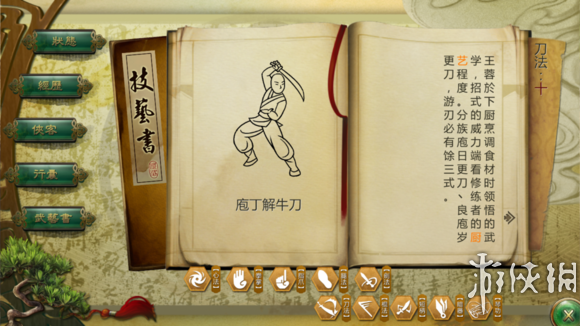 狀態
經歷
俠客
行囊
技藝書
技藝書
庖丁解牛刀
刀法：十
王蓉於下厨烹调食材时领悟的武
学，招式的威力端看修练者的厨
艺程度。分族庖日更刀、良庖岁
更刀，游刃必有馀三式。
游侠网